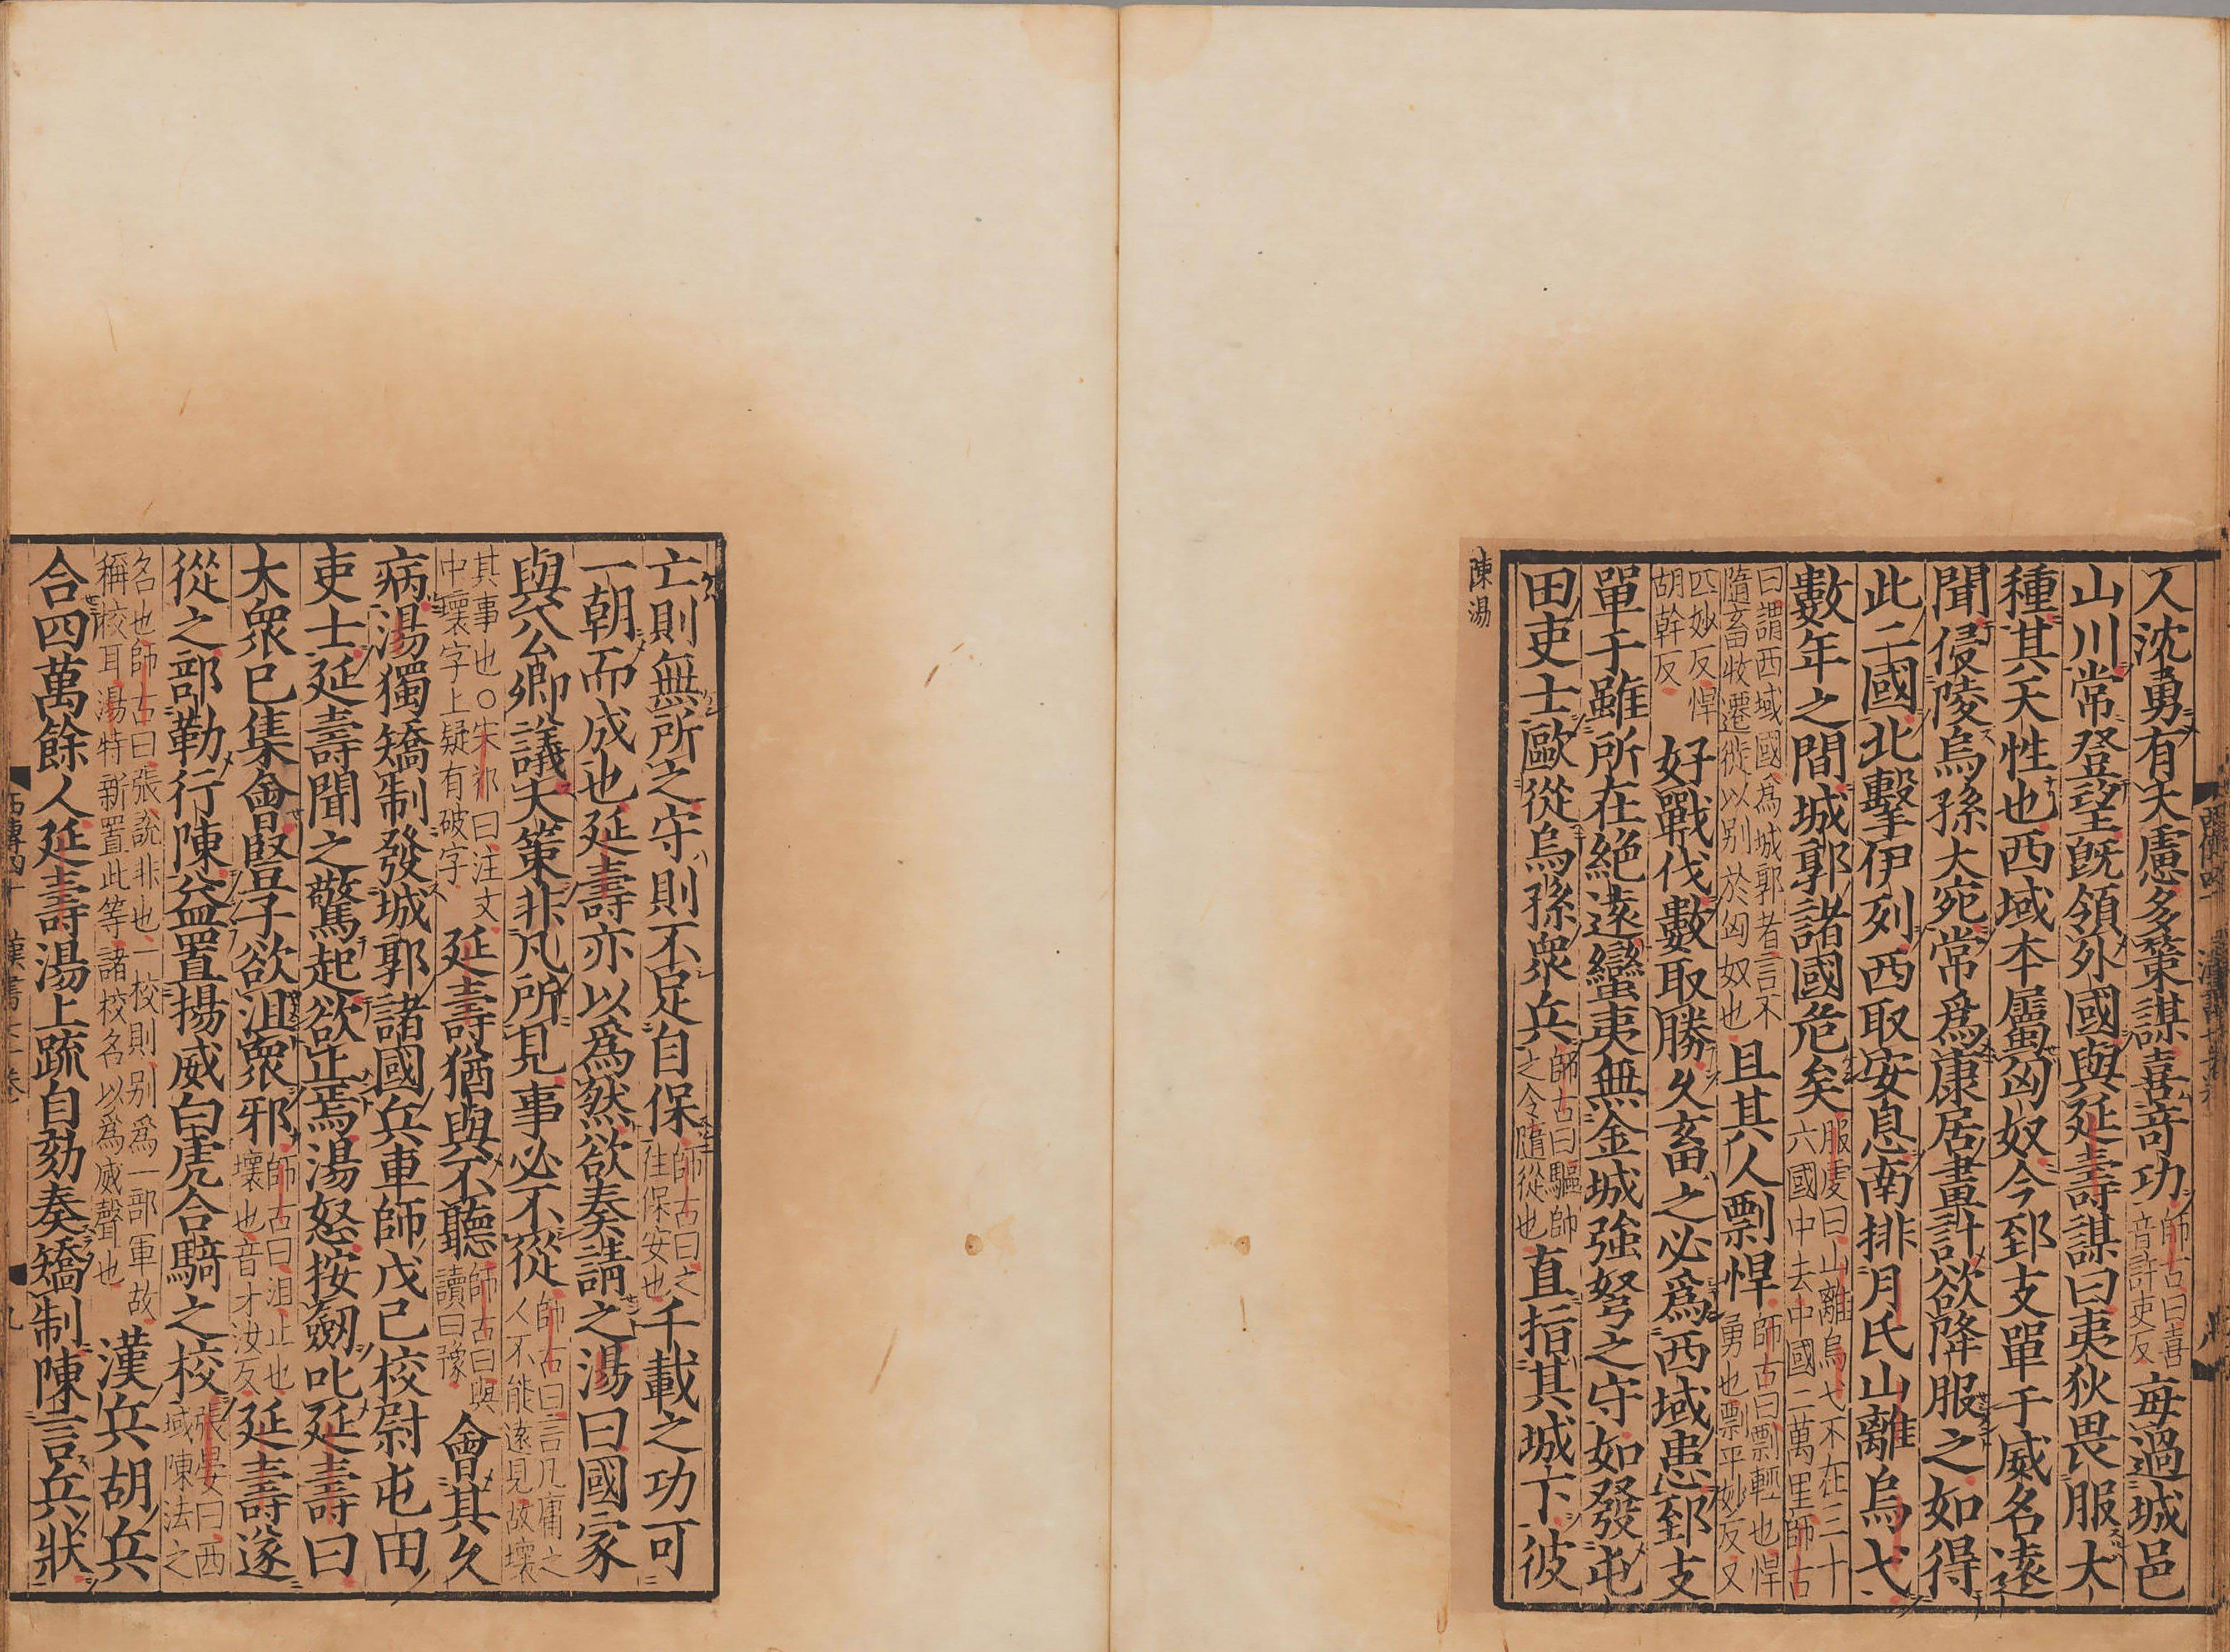 人沈勇有大慮多策謀喜奇功師古曰喜音許吏反每過城邑
山川常登望旣領外國與延壽謀曰夷狄畏服大
種其天性也西域本屬匈奴今郅支單于威名遠
聞侵陵烏孫大宛常爲康居畫計欲降服之如得
此二國北擊伊列西取安息南排月氏山離烏弋
數年之間城郭諸國危矣服虔曰山離烏弋不在三十六國中去中國二萬里師古
曰謂西域國爲城郭者言不隨畜牧遷徙以别於匈奴也且其人剽悍師古曰剽輕也悍勇也剽平妙反又
匹妙反悍胡幹反好戰伐數取勝久畜之必爲西域患郅支
單于雖所在絶遠蠻夷無金城強弩之守如發屯
田吏士歐從烏孫衆兵師古曰驅帥之令隨從也直指其城下彼
陳湯
亡則無所之守則不足自保師古曰之往保安也千載之功可
一朝而成也延壽亦以爲然欲奏請之湯曰國家
與公卿議大策非凡所見事必不從師古曰言凡庸之人不能遠見故壞
其事也○宋祁曰注文中壞字上疑有破字延壽猶與不聽師古曰與讀曰豫會其久
病湯獨矯制發城郭諸國兵車師戊己校尉屯田
吏士延壽聞之驚起欲止焉湯怒按劒叱延壽曰
大衆已集會豎子欲沮衆邪師古曰沮止也壞也音才汝反延壽遂
從之部勒行陳益置揚威白虎合騎之校張晏曰西域陳法之
名也師古曰張説非也一校則别爲一部軍故稱校耳湯特新置此等諸校名以爲威聲也漢兵胡兵
合四萬餘人延壽湯上疏自劾奏矯制陳言兵狀
西傳四十 漢書七十卷 九